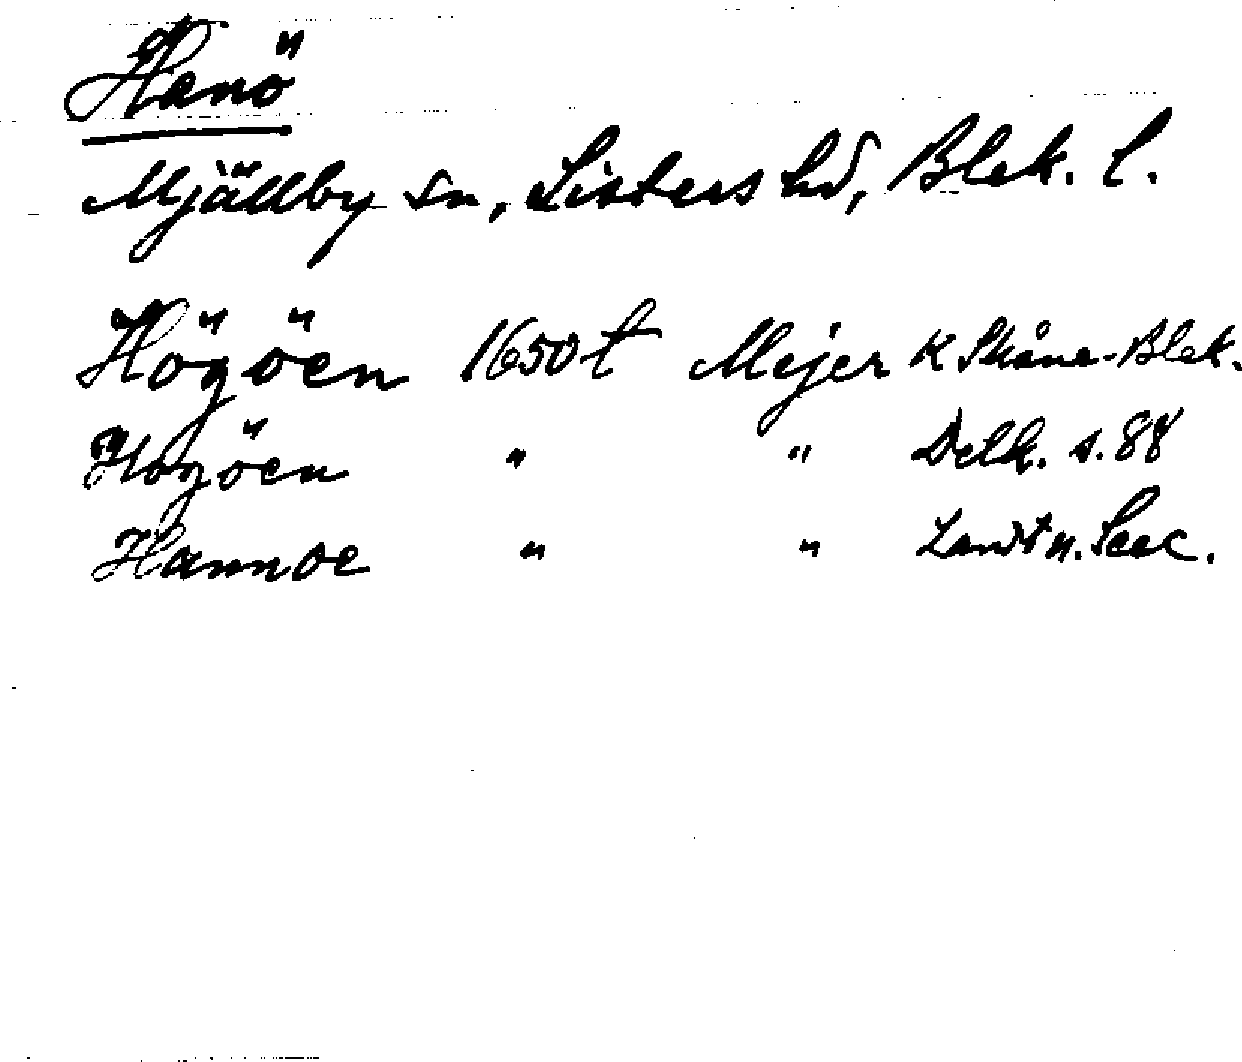 Hanö
Mjällby sn, Listers hd, Blek. l.
Högöen 1650t Mejer K Skåne-Blek.
Hogöen " " Delk. s. 88
Hannoe " " Landt n. Scac.